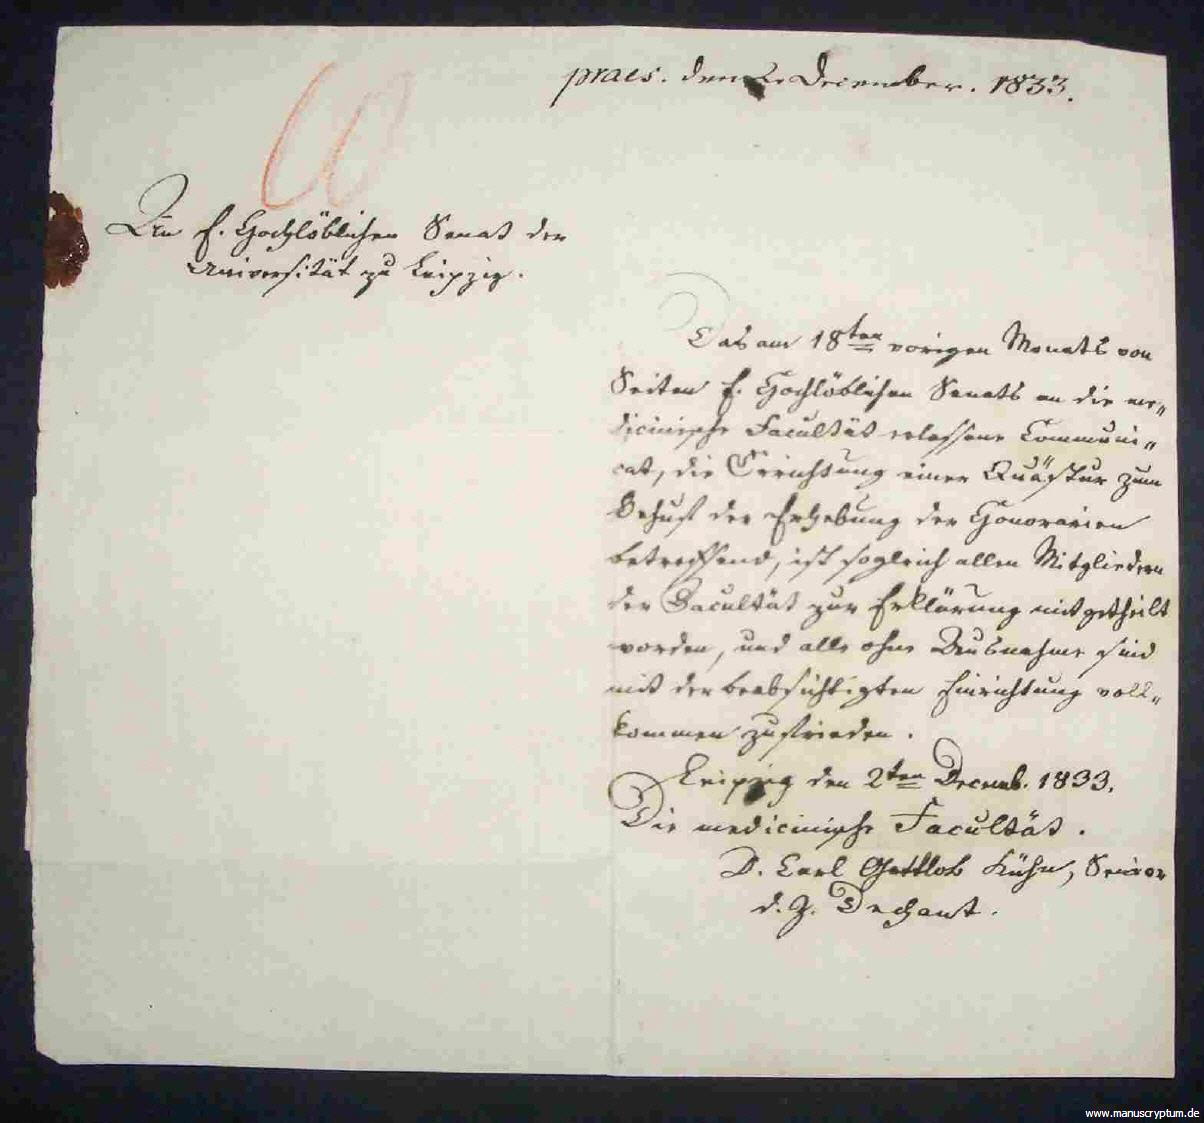 praes. den 2. December. 1833.
An E. Hochlöblichen Senat der
Universität zu Leipzig.
Das am 18ten vorigen Monats von
Seiten E. Hochlöblichen Senats an die me-
dicinische Facultät erlassene Communi-
cat, die Errichtung einer Quästur zum
Behuf der Erhebung der Honorarien
betreffend, ist sogleich allen Mitgliedern
der Facultät zur Erklärung mitgetheilt
worden, und alle ohne Ausnahme sind
mit der beabsichtigten Einrichtung voll-
kommen zufrieden.
Leipzig den 2ten Decemb. 1833.
Die medicinische Facultät.
D. Carl Gottlob Kühn, Senior
d. Z. Dechant.
www.manuscryptum.de